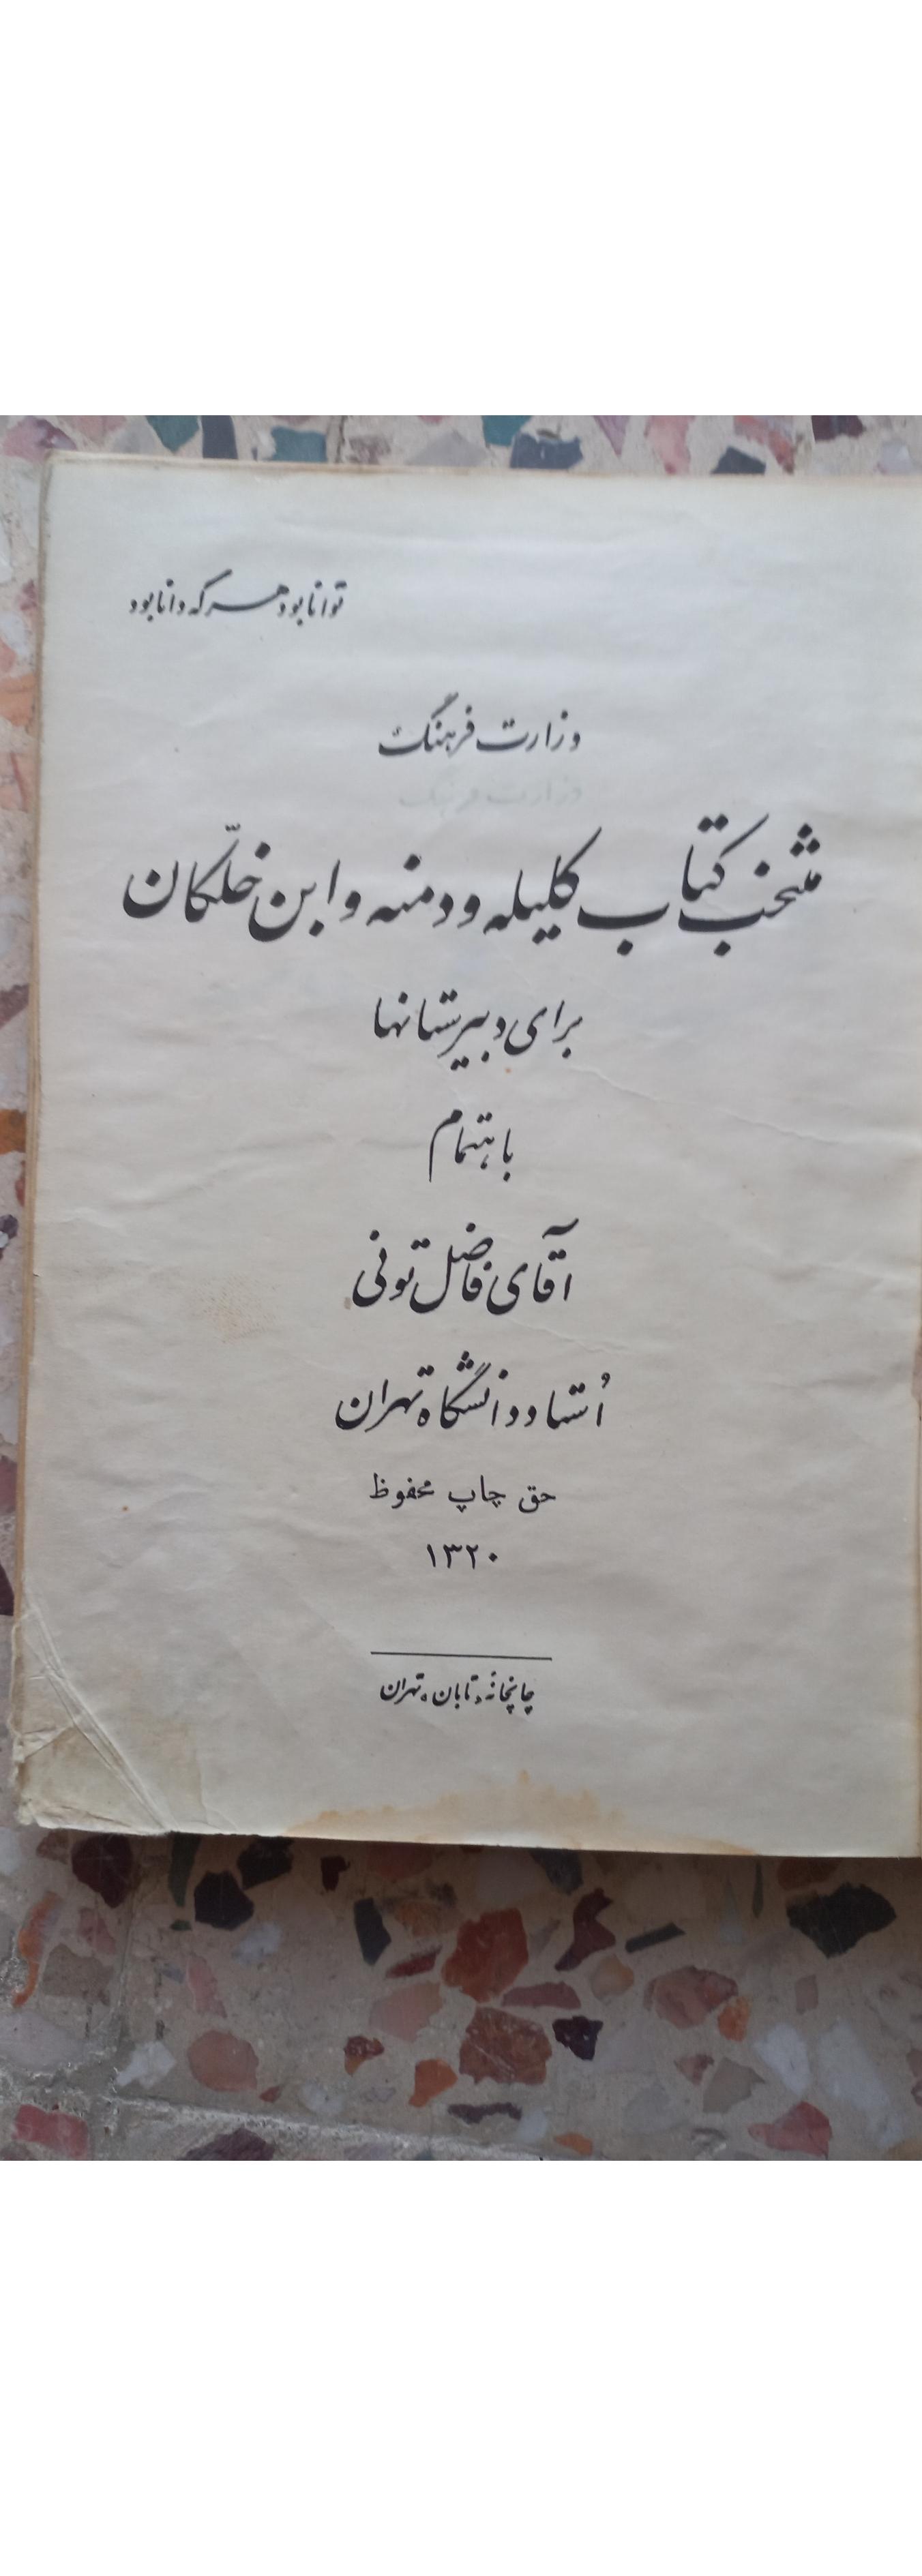 توانا بود هر که دانا بود
وزارت فرهنگ
منتخب کتاب کلیله و دمنه و ابن خلّکان
برای دبیرستانها
باهتمام
آقای فاضل تونی
اُستاد دانشگاه تهران
حق چاپ محفوظ
۱۳۲۰
چاپخانهٔ «تابان» تهران